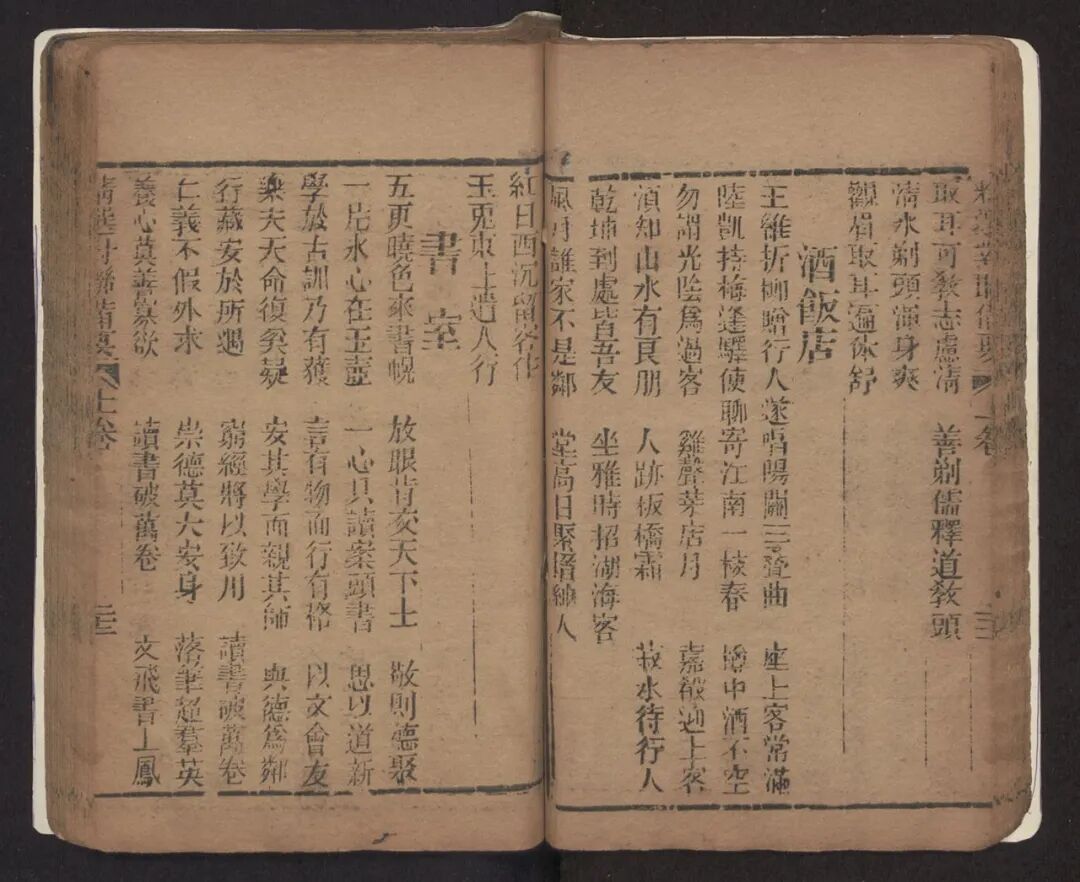 取耳可教志慮清 善剃儒釋道教頭
清水剃頭渾身爽
觀眉取耳遍体舒
酒飯店
王維折柳贈行人遂唱陽關三疊曲 座上客常滿
陸凱持梅逢驛使聊寄江南一枝春 樽中酒不空
勿謂光陰為過客 雞聲茅店月 嘉殽迎上客
須知山水有良朋 人跡板橋霜 菽水待行人
乾坤到處皆吾友 坐雅時招湖海客
風月誰家不是鄰 堂高日聚搢紳人
紅日西沉留客作
玉兎東上遣人行
書室
五更曉色來書幌 放眼肯交天下士 敬則德聚
一片氷心在玉壺 一心只讀案頭書 思以道新
學於古訓乃有獲 言有物而行有格 以文會友
樂夫天命復奚疑 安其學而親其師 與德為鄰
行藏安於所遇 窮經將以致用 讀書破萬卷
仁義不假外求 崇德莫大安身 落筆超羣英
養心莫善寡欲 讀書破萬卷 文飛書上鳳
上卷